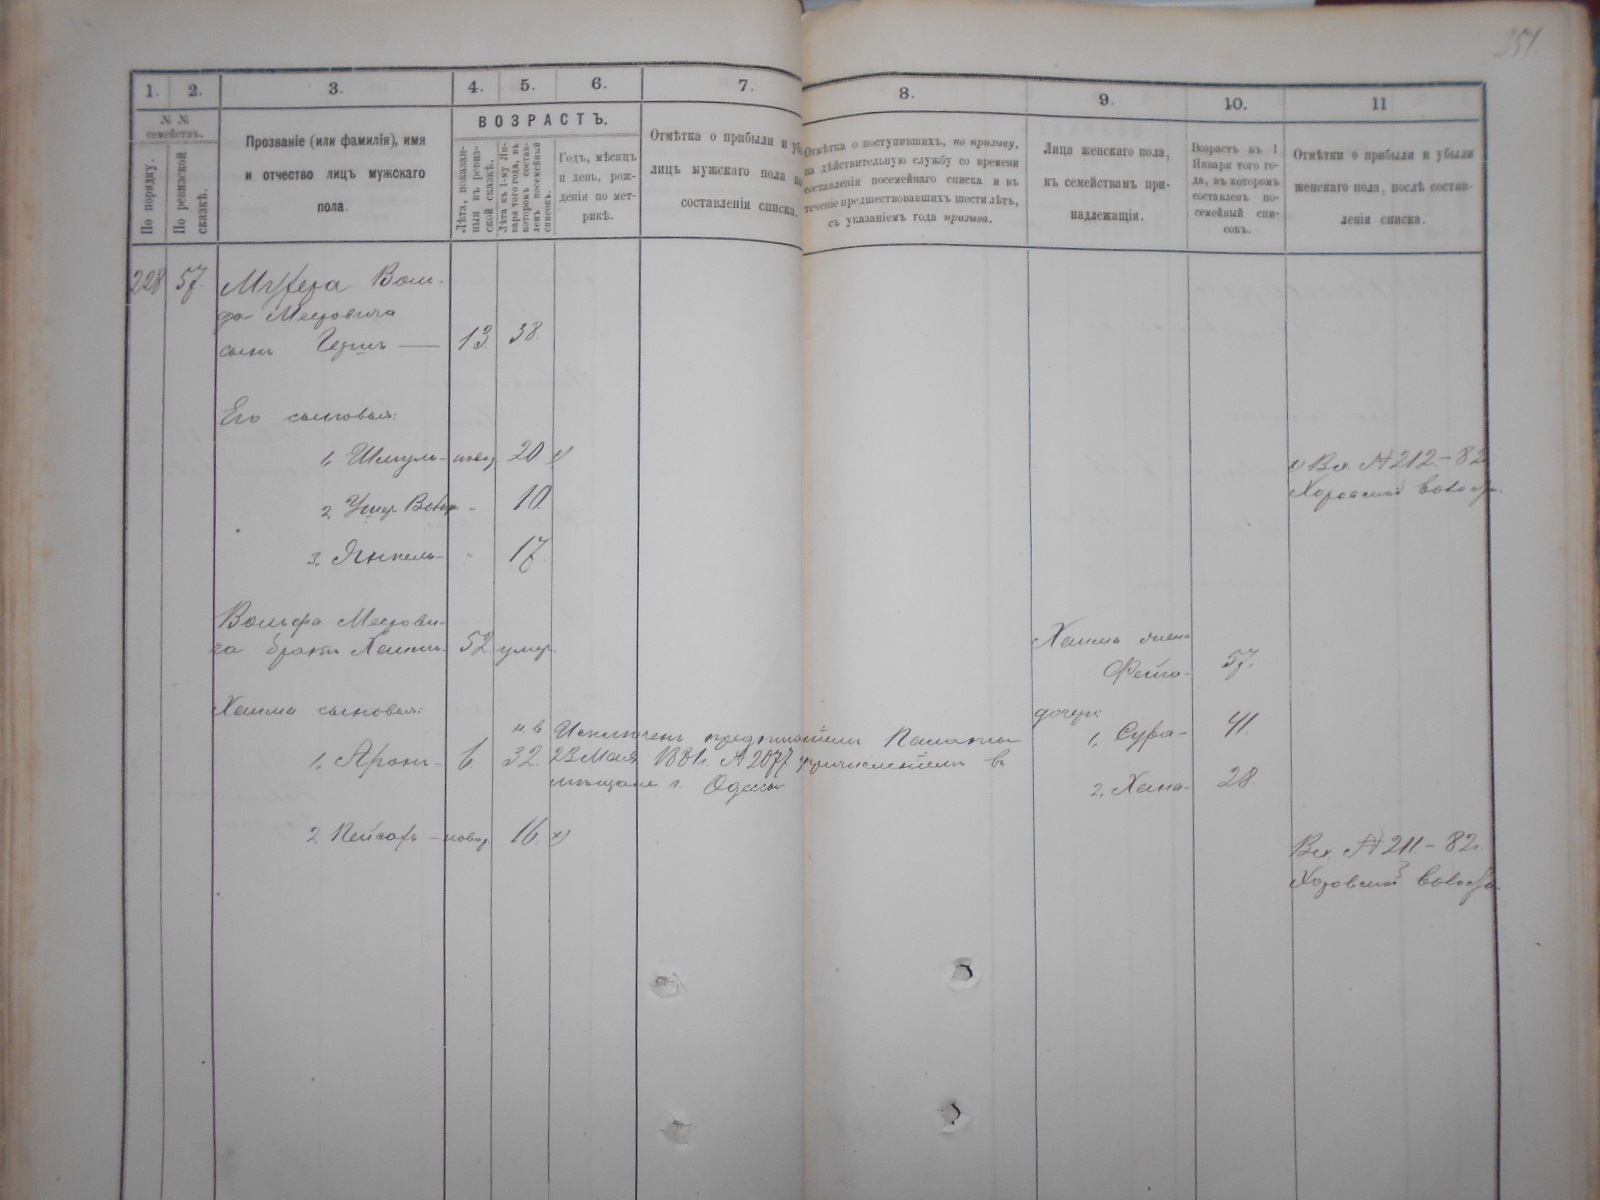 251.
1.
2.
3.
4.
5.
6.
7.
8.
9.
10.
11
№ №
семействъ.
По порядку.
По ревизской
сказкѣ.
Прозваніе (или фамилія), имя
и отчество лицъ мужскаго
пола.
ВОЗРАСТЪ.
Лѣта, показан-
ныя въ ревиз-
ской сказкѣ.
Лѣта къ 1-му Ян-
варя того года, въ
которомъ состав-
ленъ посемейный
списокъ.
Годъ, мѣсяцъ
и день, рож-
денія по мет-
рикѣ.
Отмѣтка о прибыли и
лицъ мужскаго пола
составленія списка.
Отмѣтка о поступившихъ, по призыву,
на дѣйствительную службу со времени
составленія посемейнаго списка и въ
теченіе предшествовавшихъ шести лѣтъ,
съ указаніемъ года призыва.
Лица женскаго пола,
къ семействамъ при-
надлежащія.
Возрастъ къ 1
Января того го-
да, въ которомъ
составленъ по-
семейный спи-
сокъ.
Отмѣтки о прибыли и убыли
женскаго пола, послѣ состав-
ленія списка.
228 57. Воль-
фа Мееровича
сынъ Гершъ — 13. 38
Его сыновья:
1, Шмуль - новор. 20 х) х) Вх. № 212 - 82
2 10.
3, Янкель - " 17.
Вольфа Меерови-
ча братъ Хаимъ - 52. умер. Хаима жена
Фейга - 57.
Хаима сыновья: дочери:
1, Сура - 41.
н. в Исключенъ предписаніемъ Палаты
1, Аронъ - 6. 32. 23 Мая 1881 г. № 2077 причисленіемъ въ
мѣщане г. Одессы
2, Хана - 28.
2. Пейсахъ - новор. 16. х) Вх. № 211 - 82.